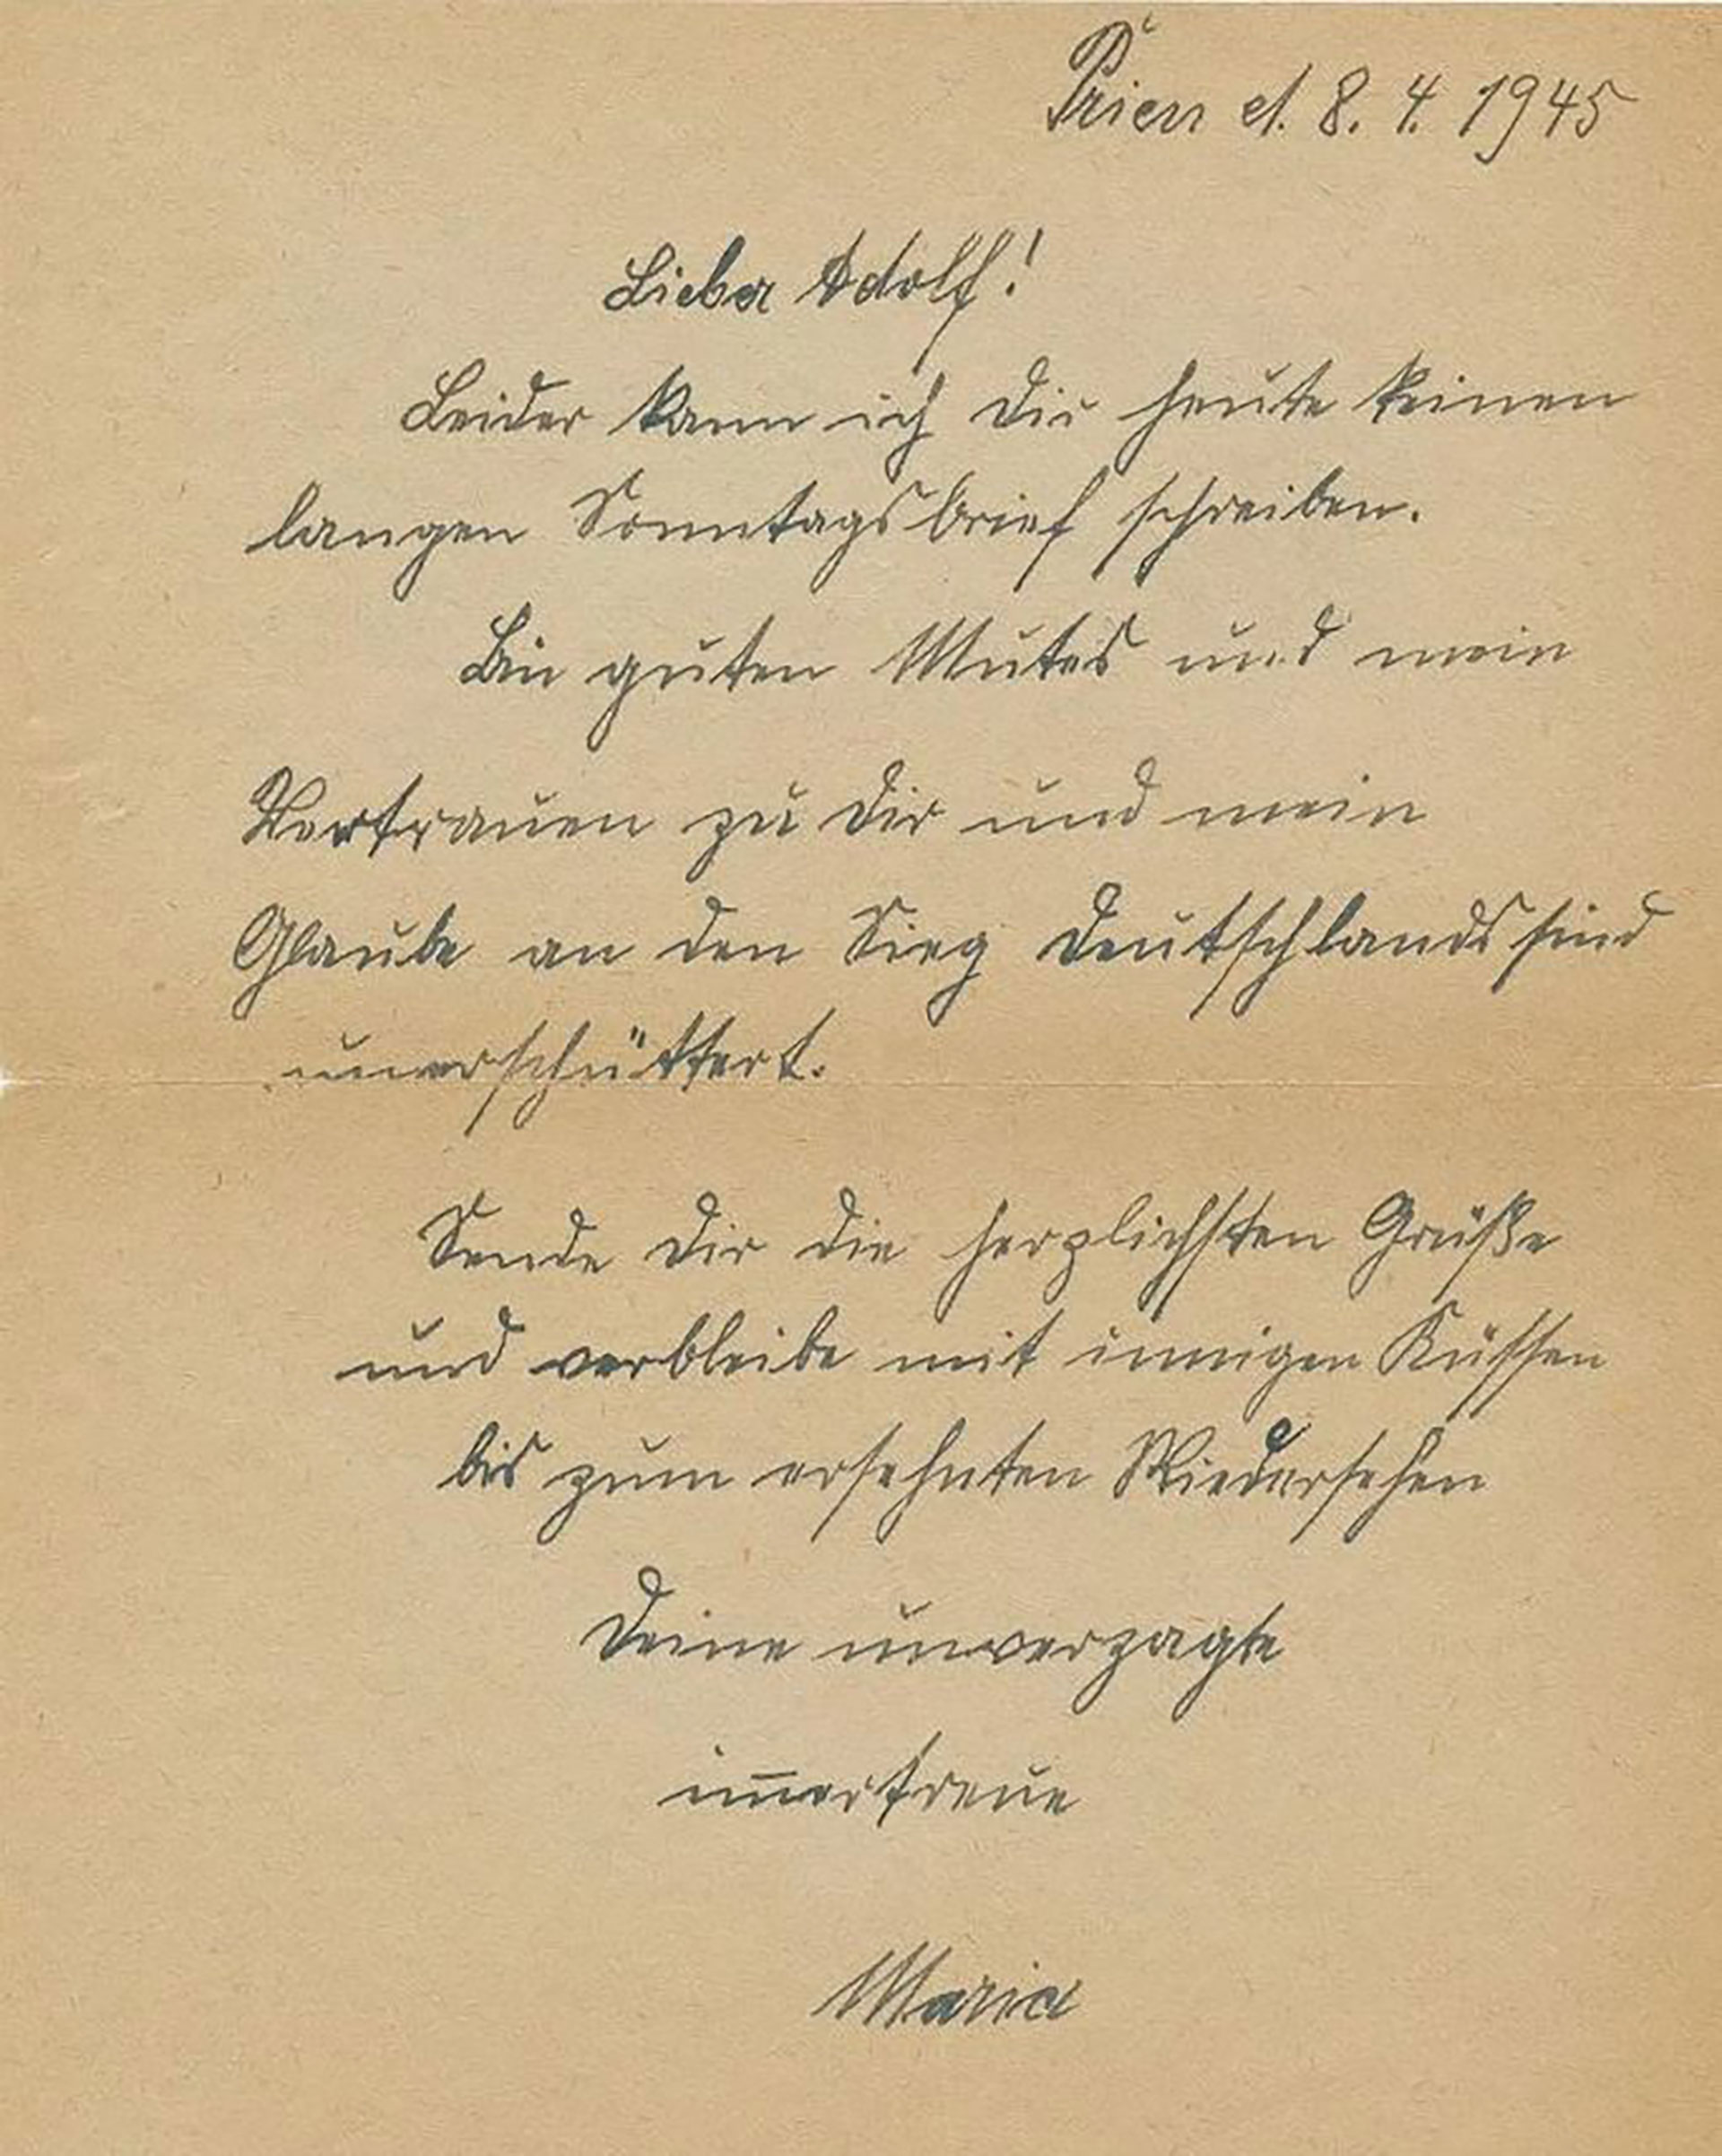 Prien d. 8. 4. 1945
Lieber Adolf!
Leider kann ich Dir heute keinen
langen Sonntagsbrief schreiben.
Bin guten Mutes und mein
Vertrauen zu Dir und mein
Glaube an den Sieg Deutschlands sind
unerschüttert.
Sende Dir die herzlichsten Grüße
und verbleibe mit innigen Küssen
bis zum ersehnten Wiedersehen
Deine unverzagte
im̅ertreue
Maria